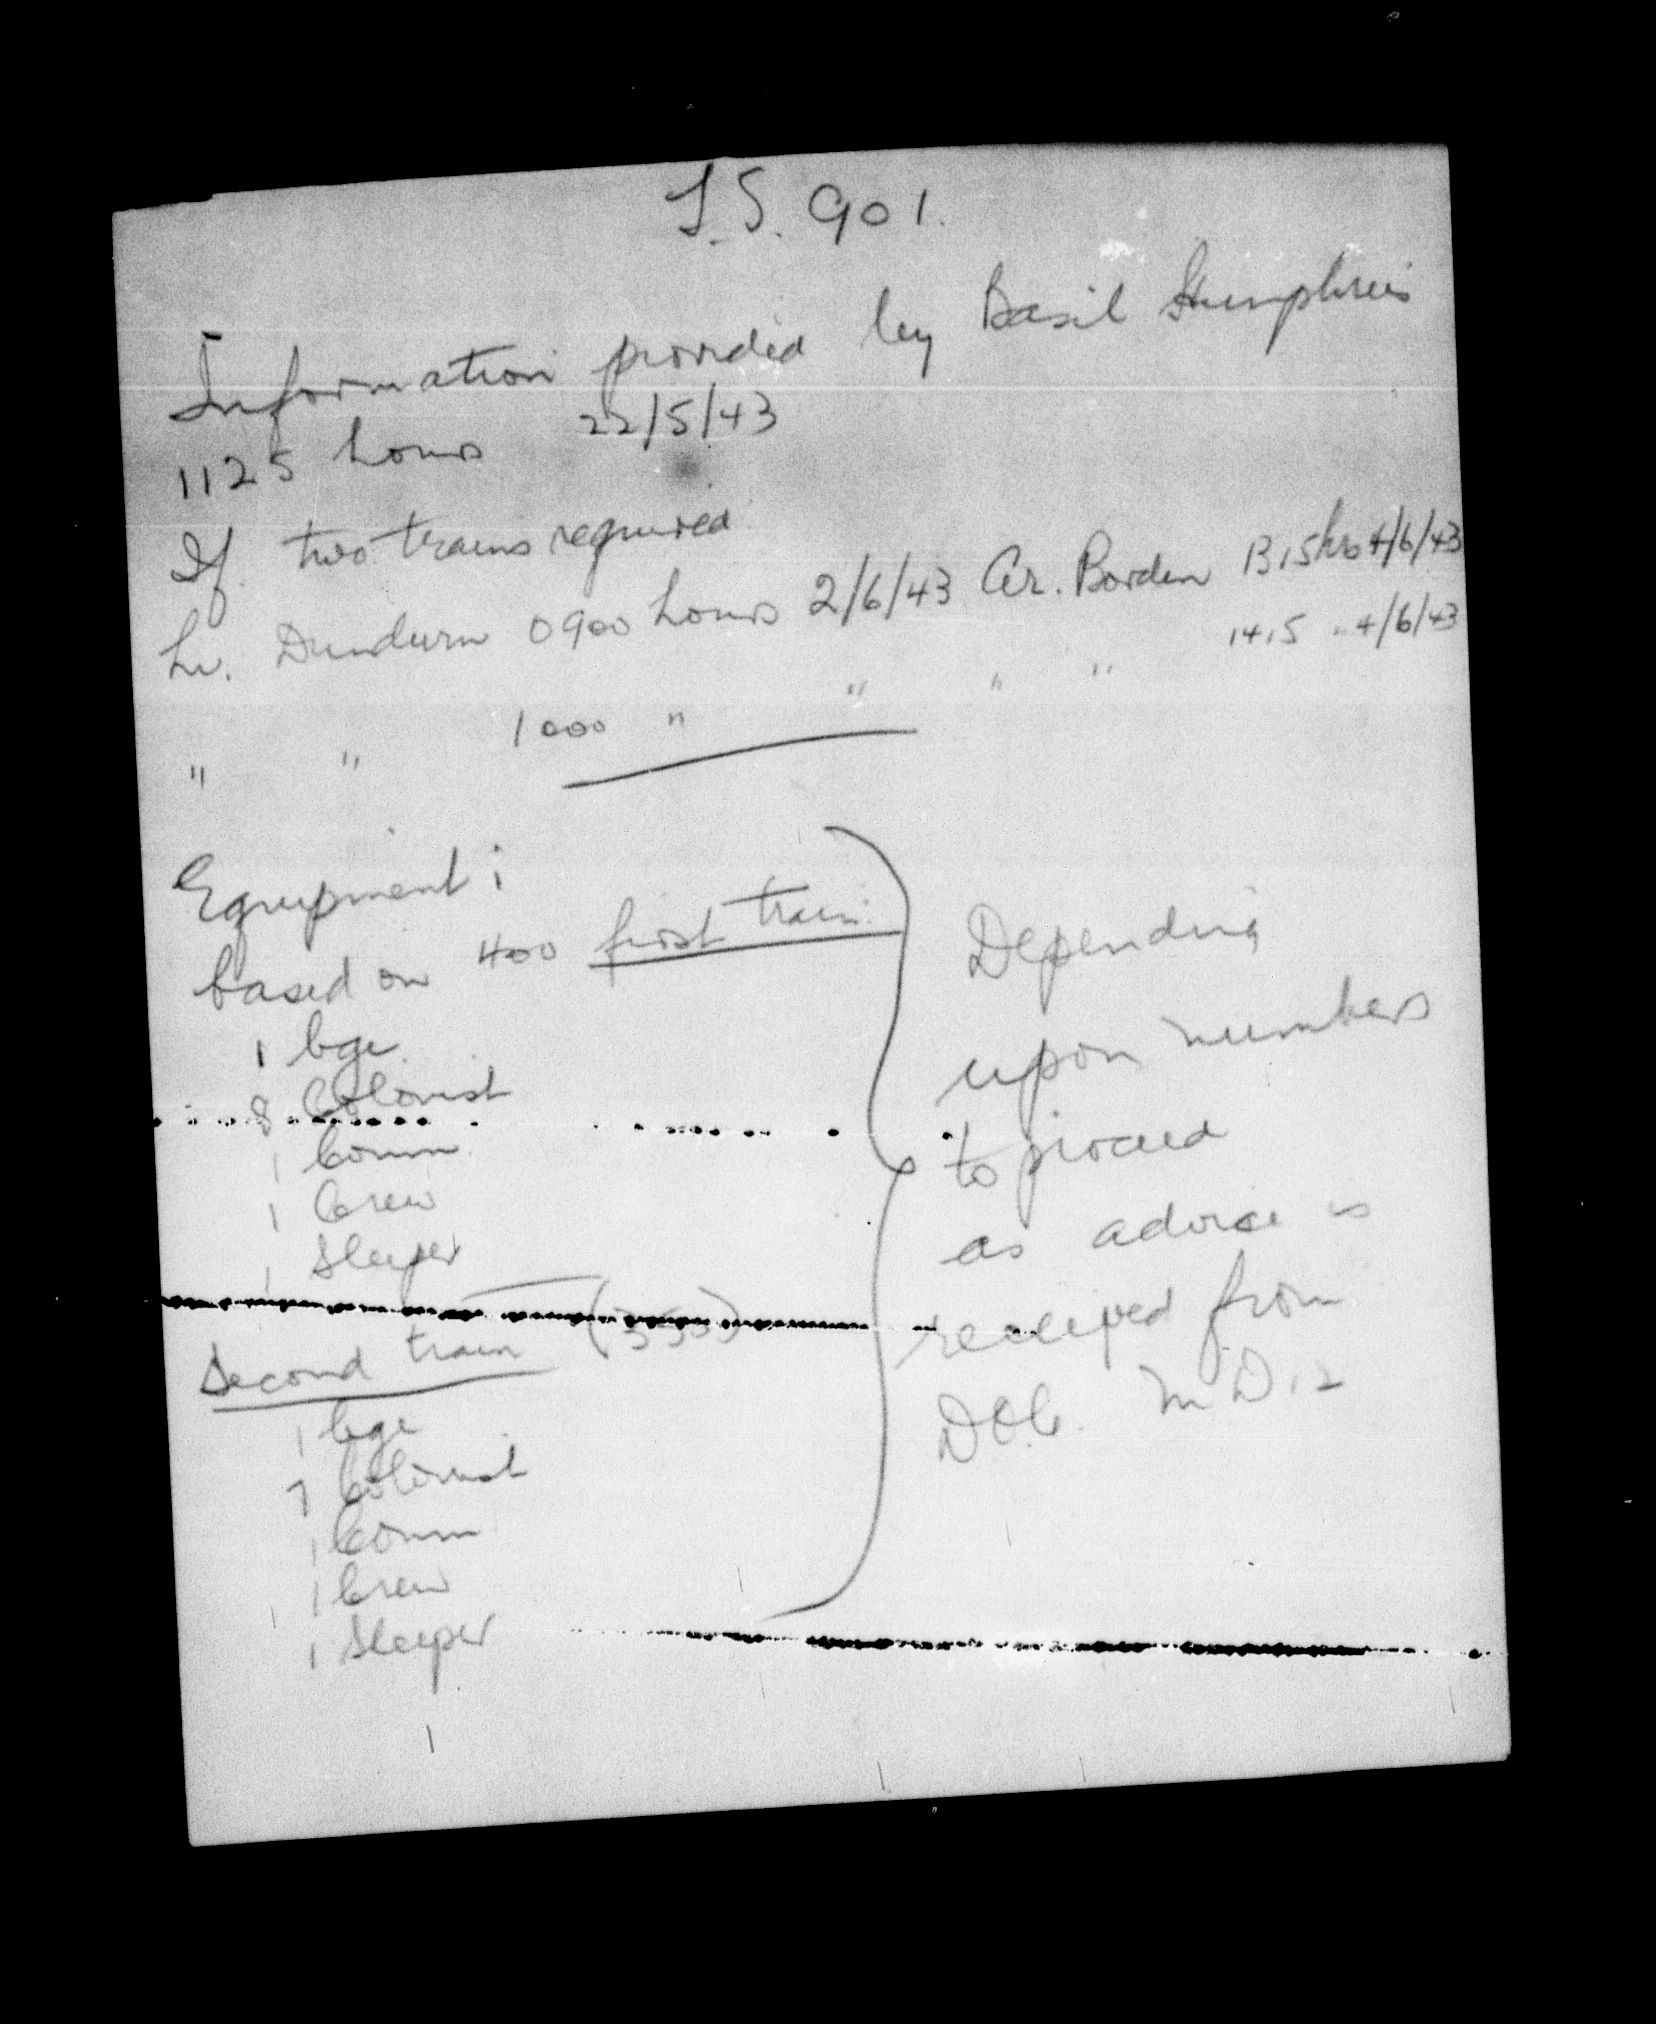 T.S. 901.
Information provided by Basil Humphries
1125 hours 22/5/43
If two trains required
Lv. Dundurn 0900 hours 2/6/43 Ar. Borden 1315 hrs 4/6/43
" " 1000 " " " " 1415 " 4/6/43
Equipment:
based on 400 first train
1 bge.
8 Colonist
1 Comm
1 Crew
1 Sleeper
Second train (350)
1 bge
7 Colonist
1 Comm
1 Crew
1 Sleeper
Depending
upon numbers
to proceed
as advice is
received from
D.O.C. M.D. 12